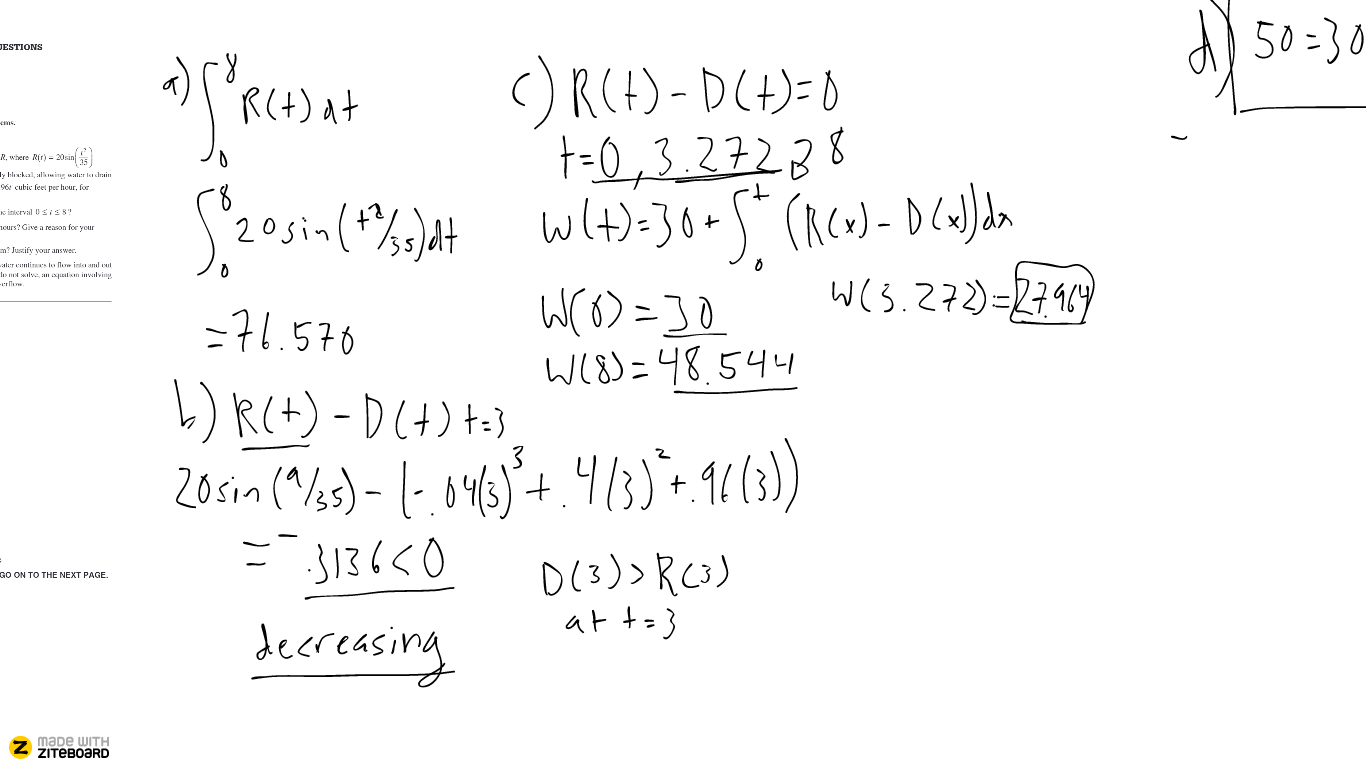 UESTIONS
ems.
R, where R(t) = 20sin(t²/35)
ly blocked, allowing water to drain
96t cubic feet per hour, for
ne interval 0 ≤ t ≤ 8 ?
hours? Give a reason for your
m? Justify your answer.
vater continues to flow into and out
do not solve, an equation involving
verflow.
GO ON TO THE NEXT PAGE.
a) ∫₀⁸ R(t) dt
∫₀⁸ 20sin(t²/35)dt
= 76.570
b) R(t) - D(t) t=3
20sin(9/35) - (-.04(3)³ + .4(3)² + .96(3))
= -.3136 < 0
decreasing
D(3) > R(3)
at t=3
c) R(t) - D(t) = 0
t=0, 3.272 & 8
W(t)=30+∫₀ᵗ (R(x) - D(x))dx
W(0) = 30
W(8) = 48.544
W(3.272) = 27.964
d) 50=30
MADE WITH
ZITEBOARD